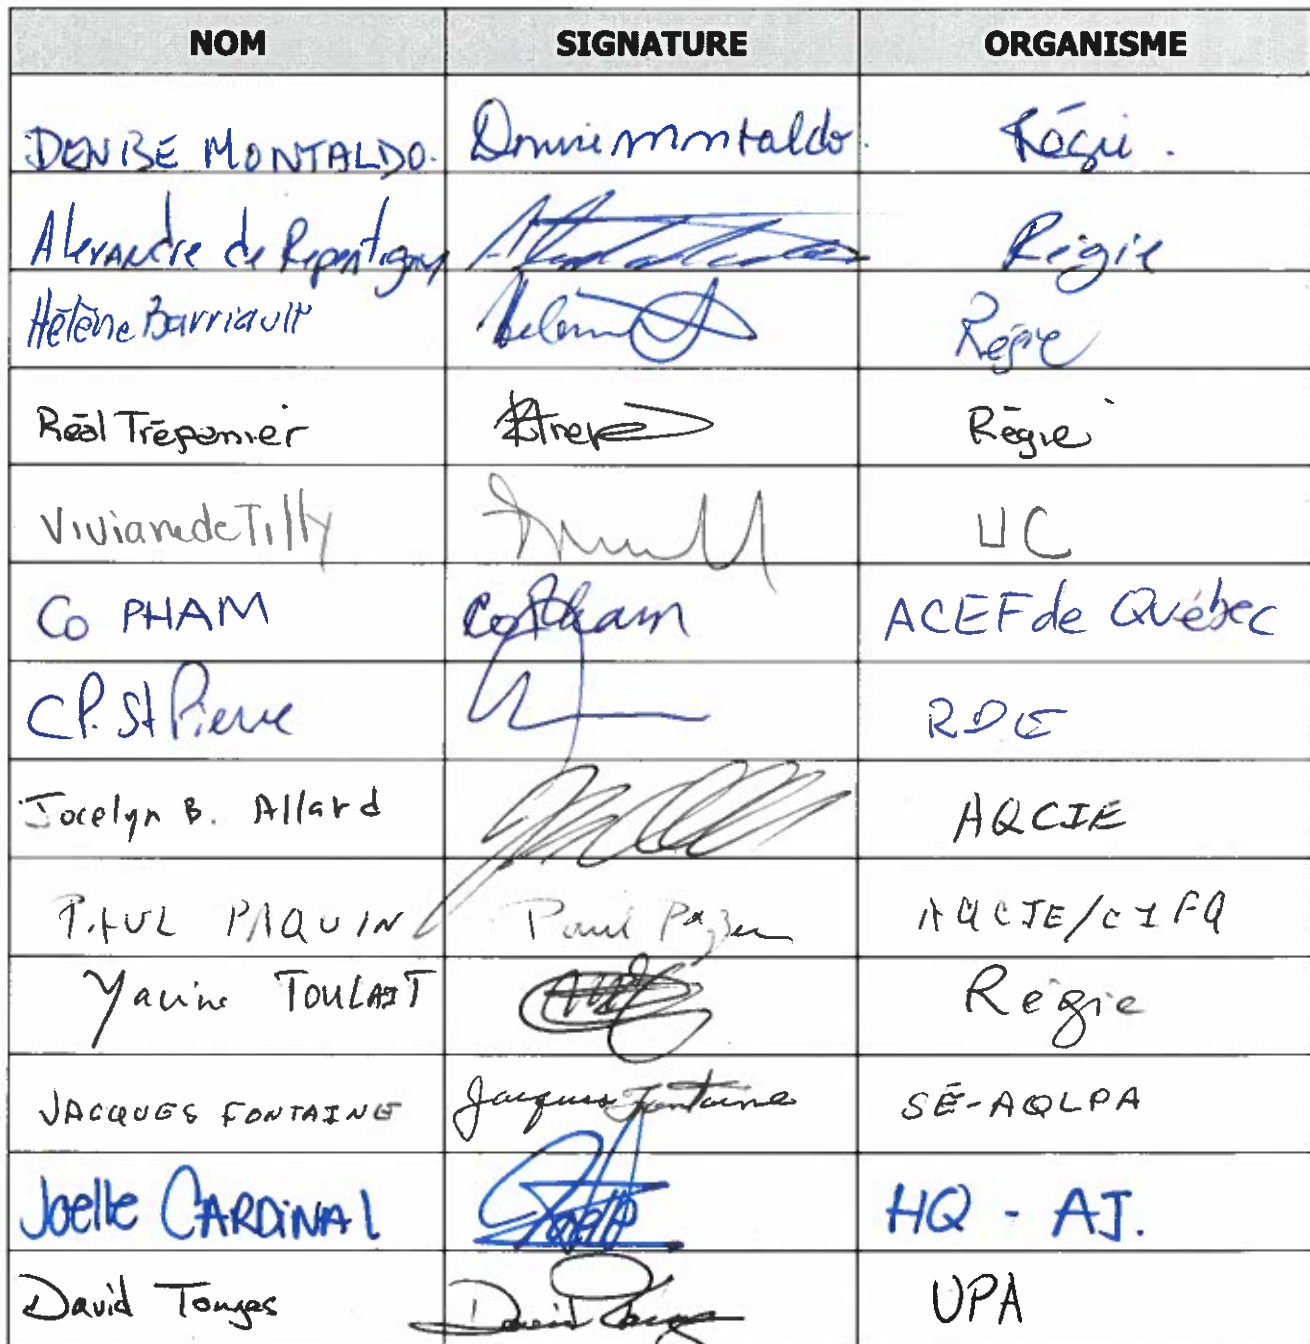 NOM SIGNATURE ORGANISME
DENISE MONTALDO. Denise Montaldo. Régie.
Alexandre de Repentigny Régie
Hélène Barriault Hélène Régie
Réal Trépanier Régie
Viviane de Tilly UC
Co PHAM Co Pham ACEF de Québec
C P. St Pierre RDE
Jocelyn B. Allard AQCIE
PAUL PAQUIN Paul Paquin AQCIE/CIFQ
Yacine TOULAIT Régie
JACQUES FONTAINE Jacques Fontaine SÉ-AQLPA
Joelle CARDINAL HQ - AJ.
David Tougas David Tougas UPA